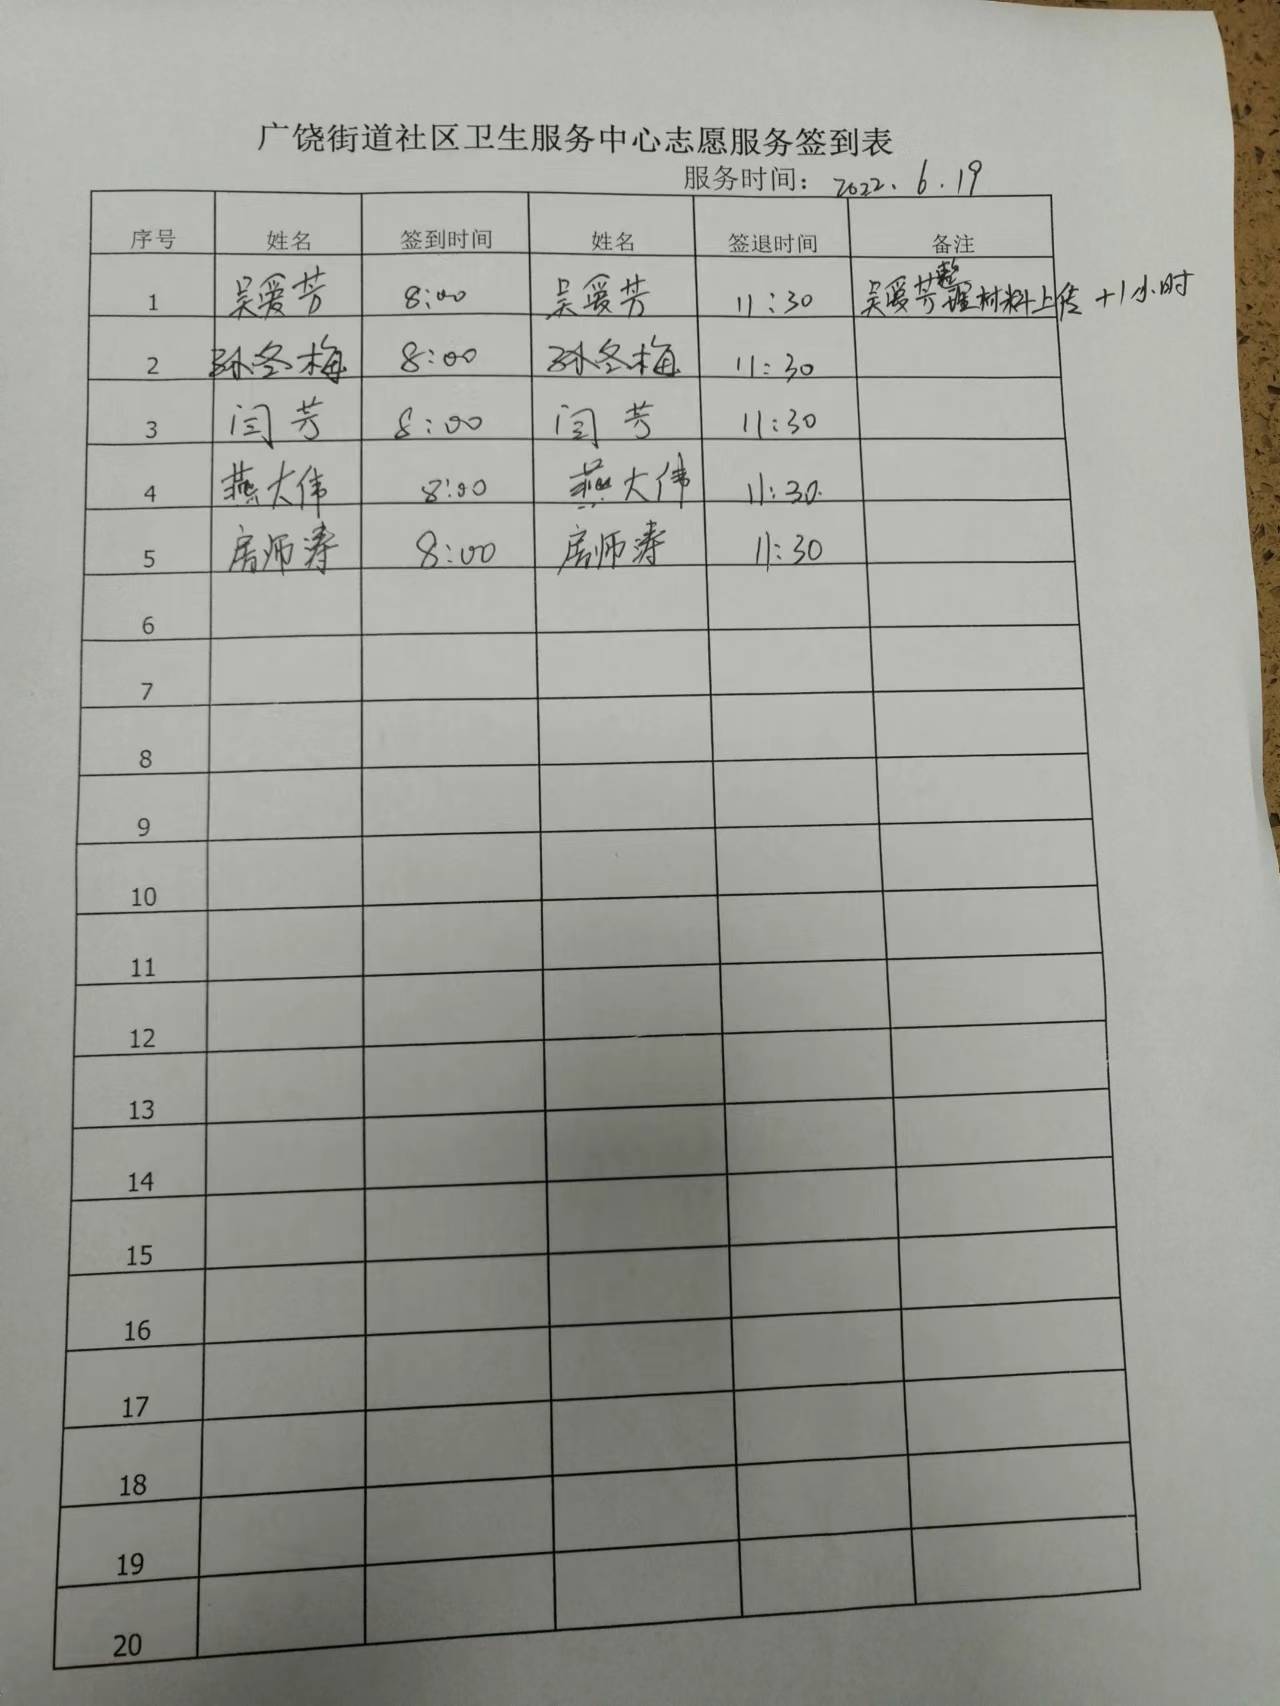 广饶街道社区卫生服务中心志愿服务签到表
服务时间：2022.6.19
序号 姓名 签到时间 姓名 签退时间 备注
1 吴爱芳 8:00 吴爱芳 11:30 吴爱芳整理材料上传+1小时
2 孙冬梅 8:00 孙冬梅 11:30
3 闫芳 8:00 闫芳 11:30
4 燕大伟 8:00 燕大伟 11:30
5 房师涛 8:00 房师涛 11:30
6
7
8
9
10
11
12
13
14
15
16
17
18
19
20